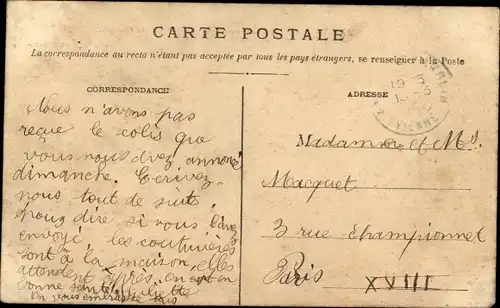 CARTE POSTALE
La correspondance au recto n'étant pas acceptée par tous les pays étrangers, se renseigner à la Poste
CORRESPONDANCE
Nous n'avons pas
reçue le colis que
vous nous avez annoncé
dimanche. Ecrivez
nous tout de suite
pour dire si vous l'avez
envoyé les couturières
sont à la maison, elles
attendent après. on est en
bonne santé. Juliette
on vous embrasse tous
ADRESSE
Madame et Mr.
Macquet
3 rue Championnet
Paris XVIII
VIENNE